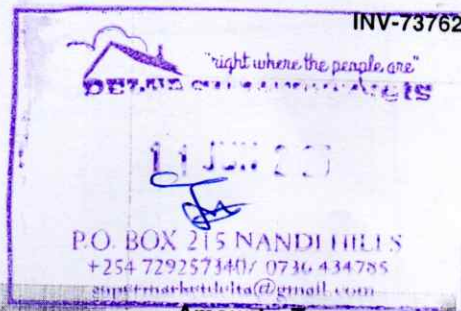 INV-73762
"right where the people are"
11 JUN
P.O. BOX 215 NANDI HILLS
+254 729257340/ 0736 434785
supermarketdelta@gmail.com